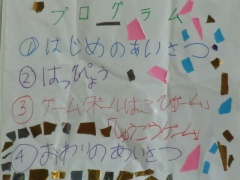 プログラム
①はじめのあいさつ
②はっぴょう
③ゲーム「ボールはこびゲーム」
ゲーム」
④おわりのあいさつ